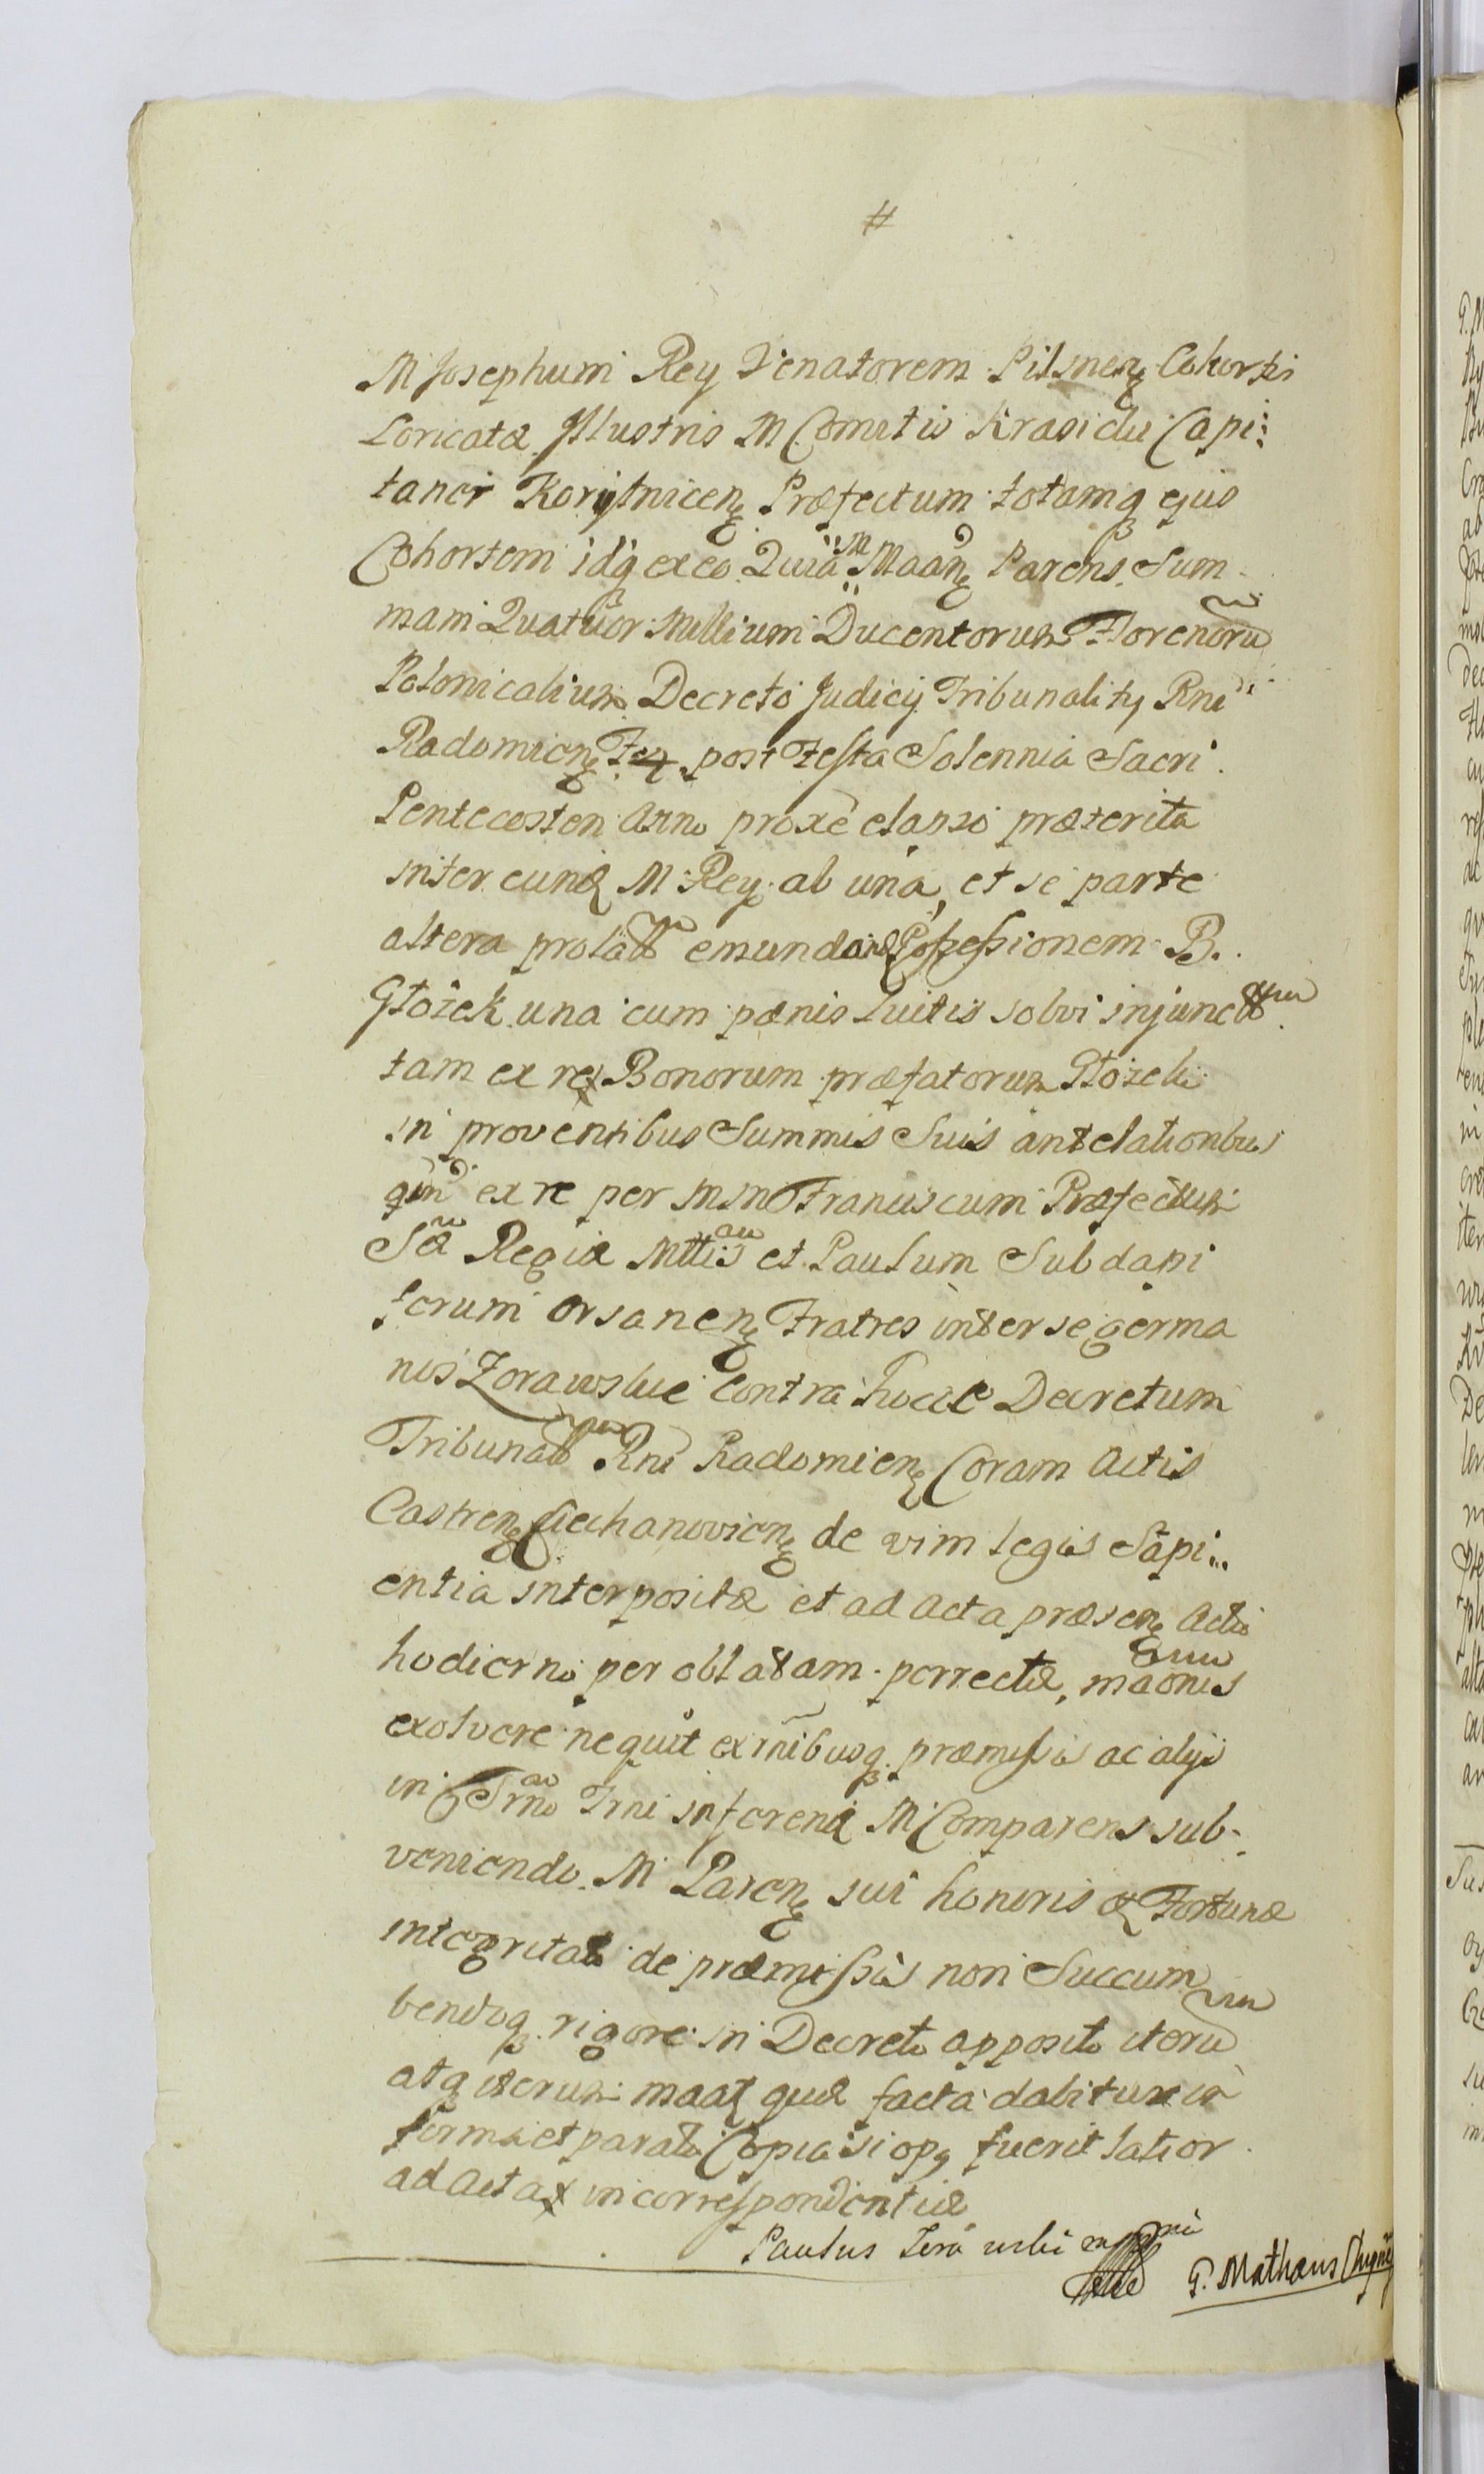 #
M Josephum Rey Venatorem Pilsnen Cohorti
Loricatæ Illustris M Comitis Krasicki Capi:
tanei Korytnicen Præfectum totamq ejus
Cohortem idq ex eo Quia M Maan Parens Sum
mam Quatuor Millium Ducentorum Florenoru
Polonicalium Decreto Judicij Tribunality Rni
Radomien post Festa Solennia Sacri
Pentecosten Anno proxe elapso præterita
inter eund M Rey ab una, et se parte
altera prolato emundand Possessionem B.
Głożek una cum pænis luitis solvi injunct
tam ex re Bonorum præfatorum Głożek
in proventibus Summis Suis antelationibus
qm ex re per M M Franciscum Præfectum
Sæ Regiæ Mttis et Paulum Subdapi
ferum Orsanen Fratres inter se germa
nos Zorawskie contra hocce Decretum
Tribunal Rni Radomien Coram Actis
Castren Ciechanovien de vim legis Sapi
entia interpositæ et ad Acta præsen Actu
hodierno per oblatam porrectæ, maonis
exolvere nequit ex rnibusq præmissis ac alijs
in Trno Trni inferend M Comparens sub-
veniendo M Paren sui honoris & Fortunæ
integritati de præmissis non Succum
bendoq rigore in Decreto apposito iteru
atq iterum maat quæ facta dabitur in
forma et parata Copia si op fuerit latior
ad Acta in correspondentiæ
Paulus mpp
P. Mathæus